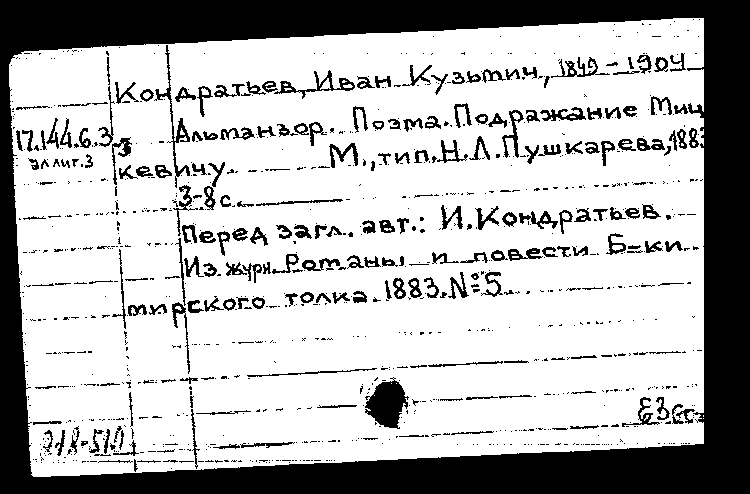 Кондратьев, Иван Кузьмич, 1849-1904
17.144.6.3 Альманзор. Поэма. Подражание Миц
аллиг.3 кевичу. М., тип. Н.Л. Пушкарева, 1883
3-8с.
Перед загл. авт.: И. Кондратьев.
Из журн. Романы и повести Б-ки
мирского толка. 1883. № 5.
218-510